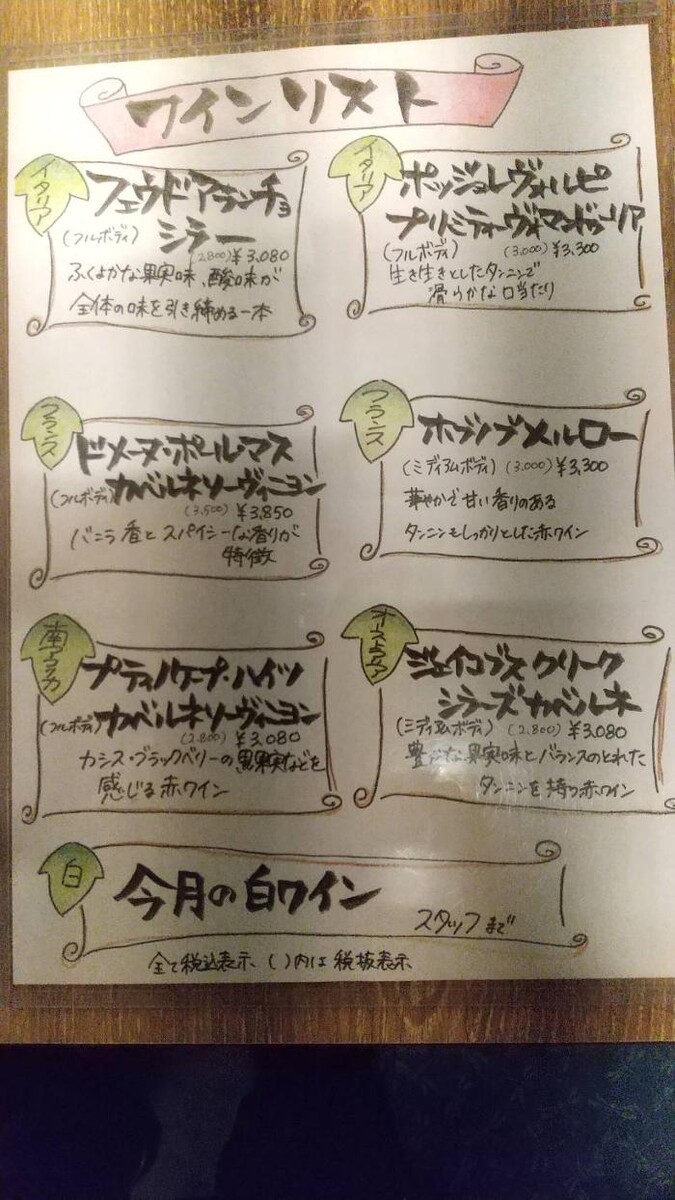 ワインリスト
イタリア
フェウドアランチョ
シラー
(フルボディ)
(2,800)¥3,080
ふくよかな果実味、酸味が
全体の味を引き締める一本
イタリア
ポッジョレヴォルピ
プリミティーヴォマンドゥーリア
(フルボディ) (3,000)¥3,300
生き生きとしたタンニンで
滑らかな口当たり
フランス
ドメーヌ・ポールマス
(フルボディ)カベルネソーヴィニヨン
(3,500)¥3,850
バニラ香とスパイシーな香りが
特徴
フランス
ホブノブメルロー
(ミディアムボディ) (3,000)¥3,300
華やかで甘い香りのある
タンニンもしっかりとした赤ワイン
南アフリカ
プティノケープ・ハイツ
(フルボディ)カベルネソーヴィニヨン
(2,800)¥3,080
カシス・ブラックベリーの黒果実などを
感じる赤ワイン
オーストラリア
ジェイコブスクリーク
シラーズカベルネ
(ミディアムボディ) (2,800)¥3,080
豊かな果実味とバランスのとれた
タンニンを持つ赤ワイン
白
今月の白ワイン
スタッフまで
全て税込表示、( )内は税抜表示